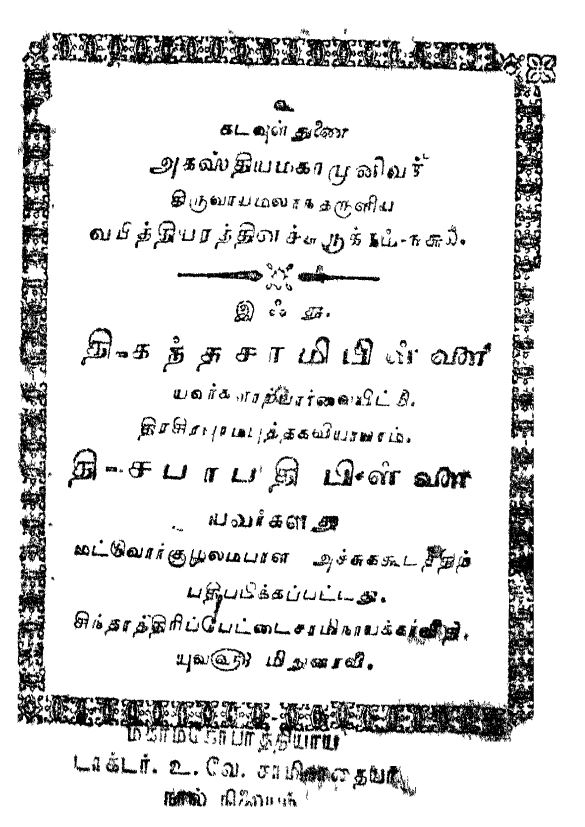 உ
கடவுள் துணை
அகஸ்தியமகாமுனிவர்
திருவாய்மலர்ந்தருளிய
வயித்தியரத்தினச்சுருக்கம்-நகல்.
இஃது.
தி-கந்தசாமி பிள்ளை
யவர்களாற் பார்வையிட்டு.
திரிசிரபுரம் புத்தகவியாபாரம்.
தி-சபாபதி பிள்ளை
யவர்களது
மட்டுவார்குழலம்பாள் அச்சுக்கூடத்திற்
பதிப்பிக்கப்பட்டது.
சிந்தாத்திரிப்பேட்டைசாமிநாயக்கர்வீதி.
யுவ௵ மிதுனரவி.
மகாமகோபாத்தியாய
டாக்டர். உ. வே. சாமிநாதையர்
நூல் நிலையம்